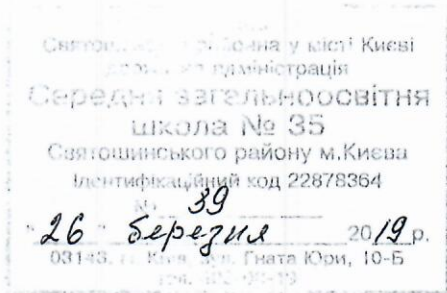 Святошинська районна у місті Києві
державна адміністрація
Середня загальноосвітня
школа № 35
Святошинського району м.Києва
Ідентифікаційний код 22878364
№ 39
"26" березня 2019 р.
03148, м. Київ, вул. Гната Юри, 10-Б
тел.